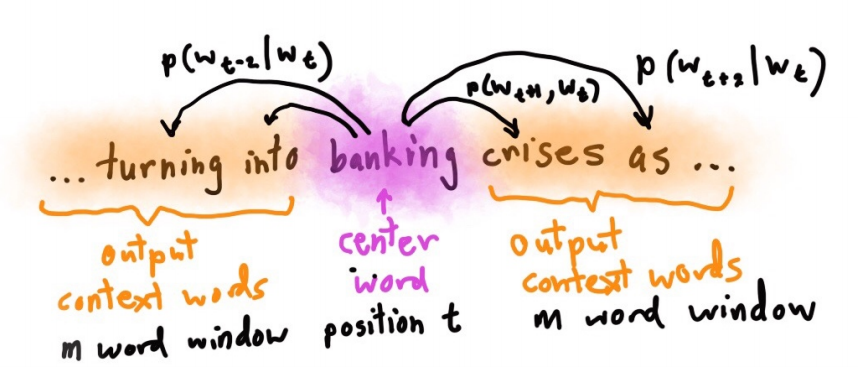 p(w_{t-2}|w_t) p(w_{t+1},w_t) p(w_{t+2}|w_t)
... turning into banking crises as ...
output context words m word window
center word position t
output context words m word window